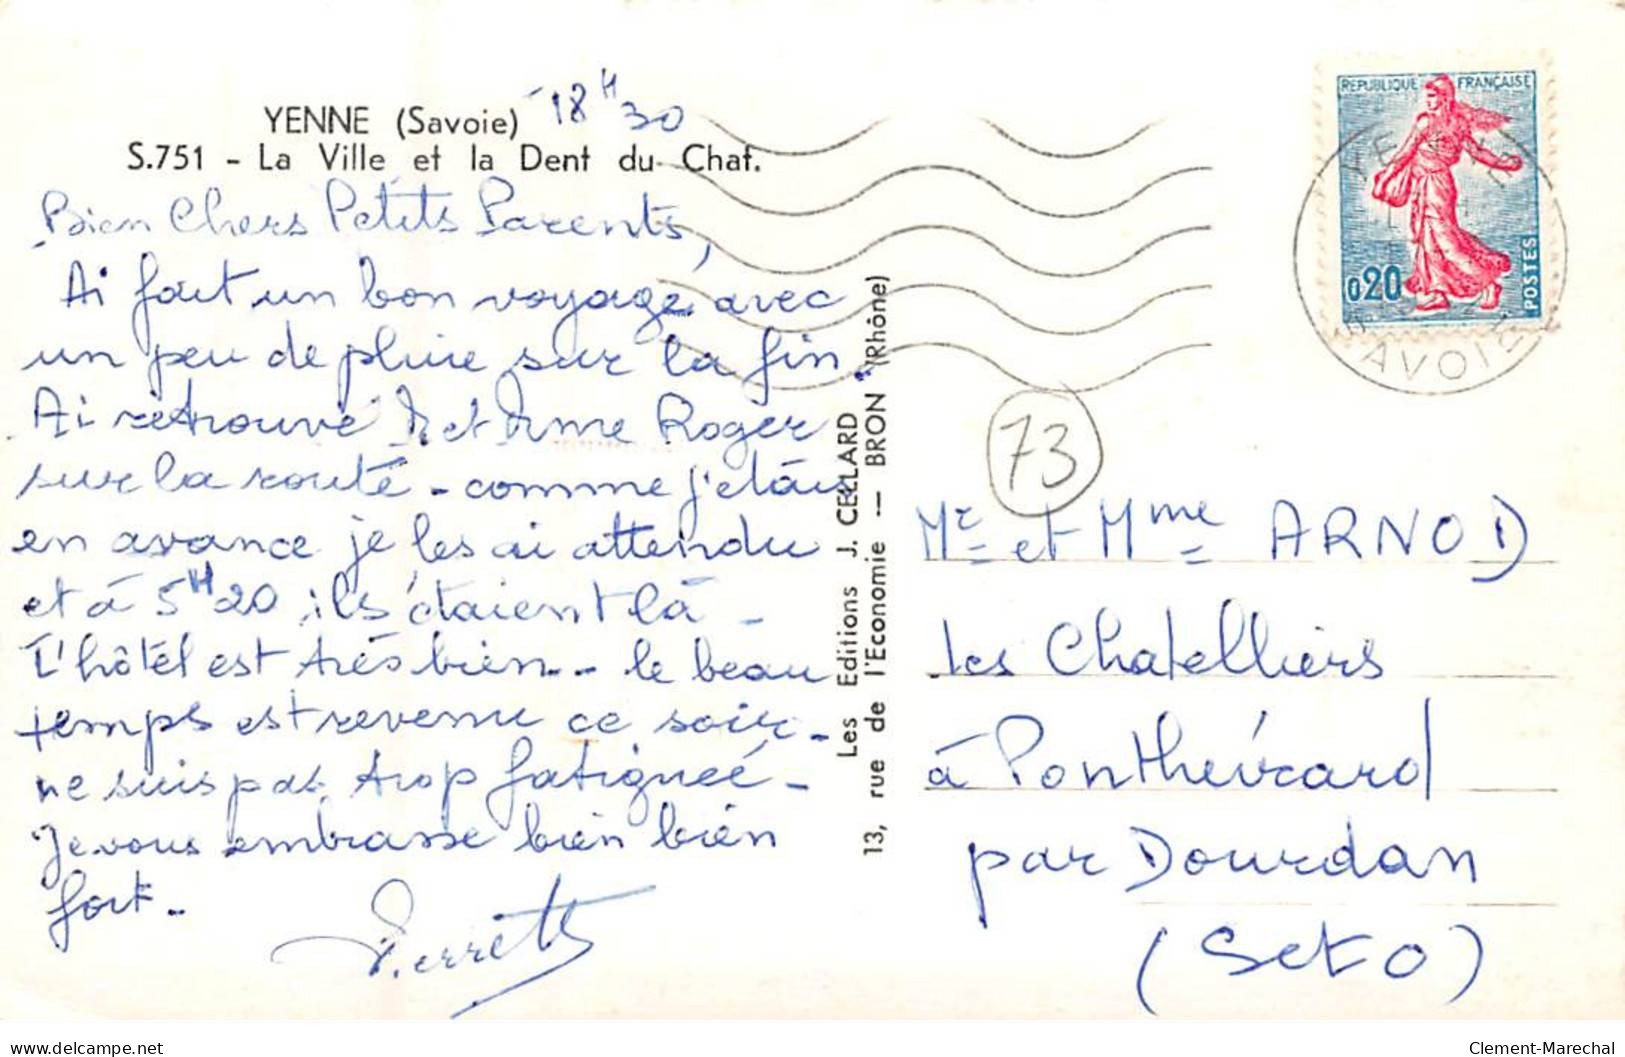 YENNE (Savoie) - 18H30
S.751 - La Ville et la Dent du Chat.
Bien Chers Petits Parents,
Ai fait un bon voyage avec
un peu de pluie sur la fin.
Ai retrouvé Mr et Mme Roger
sur la route - comme j'étais
en avance je les ai attendu
et à 5H20 ils étaient là -
L'hôtel est très bien - - le beau
temps est revenu ce soir -
ne suis pas trop fatiguée -
Je vous embrasse bien bien
fort -
Pierrette
Les Editions J. CELLARD
13, rue de l'Economie — BRON (Rhône)
REPUBLIQUE FRANÇAISE
0,20
POSTES
YENNE
SAVOIE
73
Mr et Mme ARNOD
Les Chatelliers
à Ponthévrard
par Dourdan
(S et O)
delcampe.net
Clement-Marechal